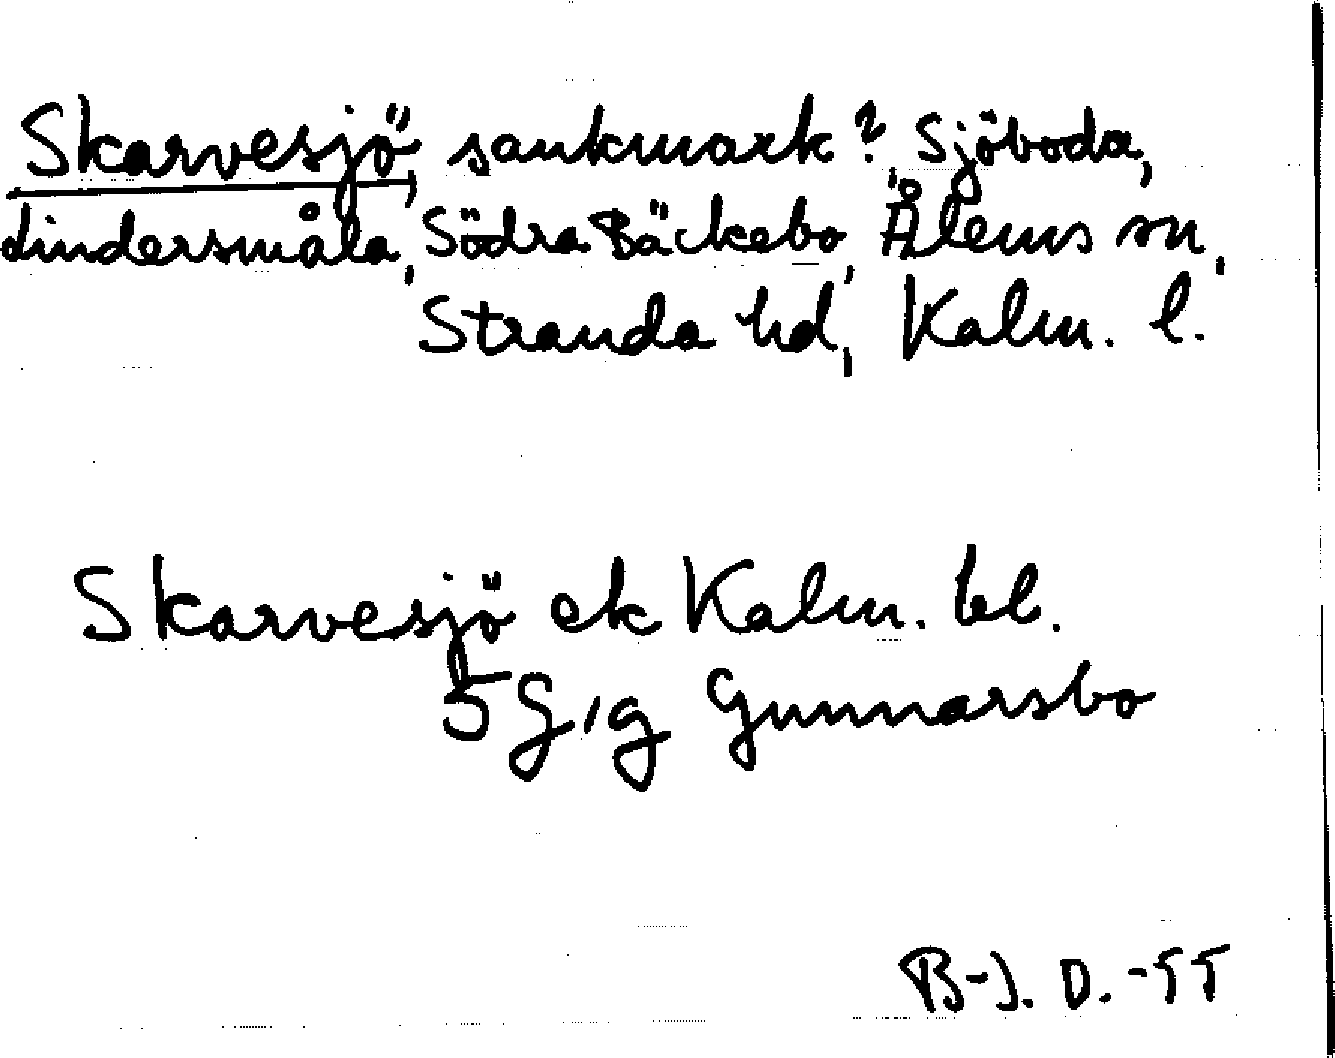 Skarvesjö, sankmark?, Sjöboda,
Lindersmåla, Södra Bäckebo, Ålems sn,
Stranda hd, Kalm. l.
Skarvesjö ek Kalm. bl.
5G, g Gunnarsbo
B-J. D. -55